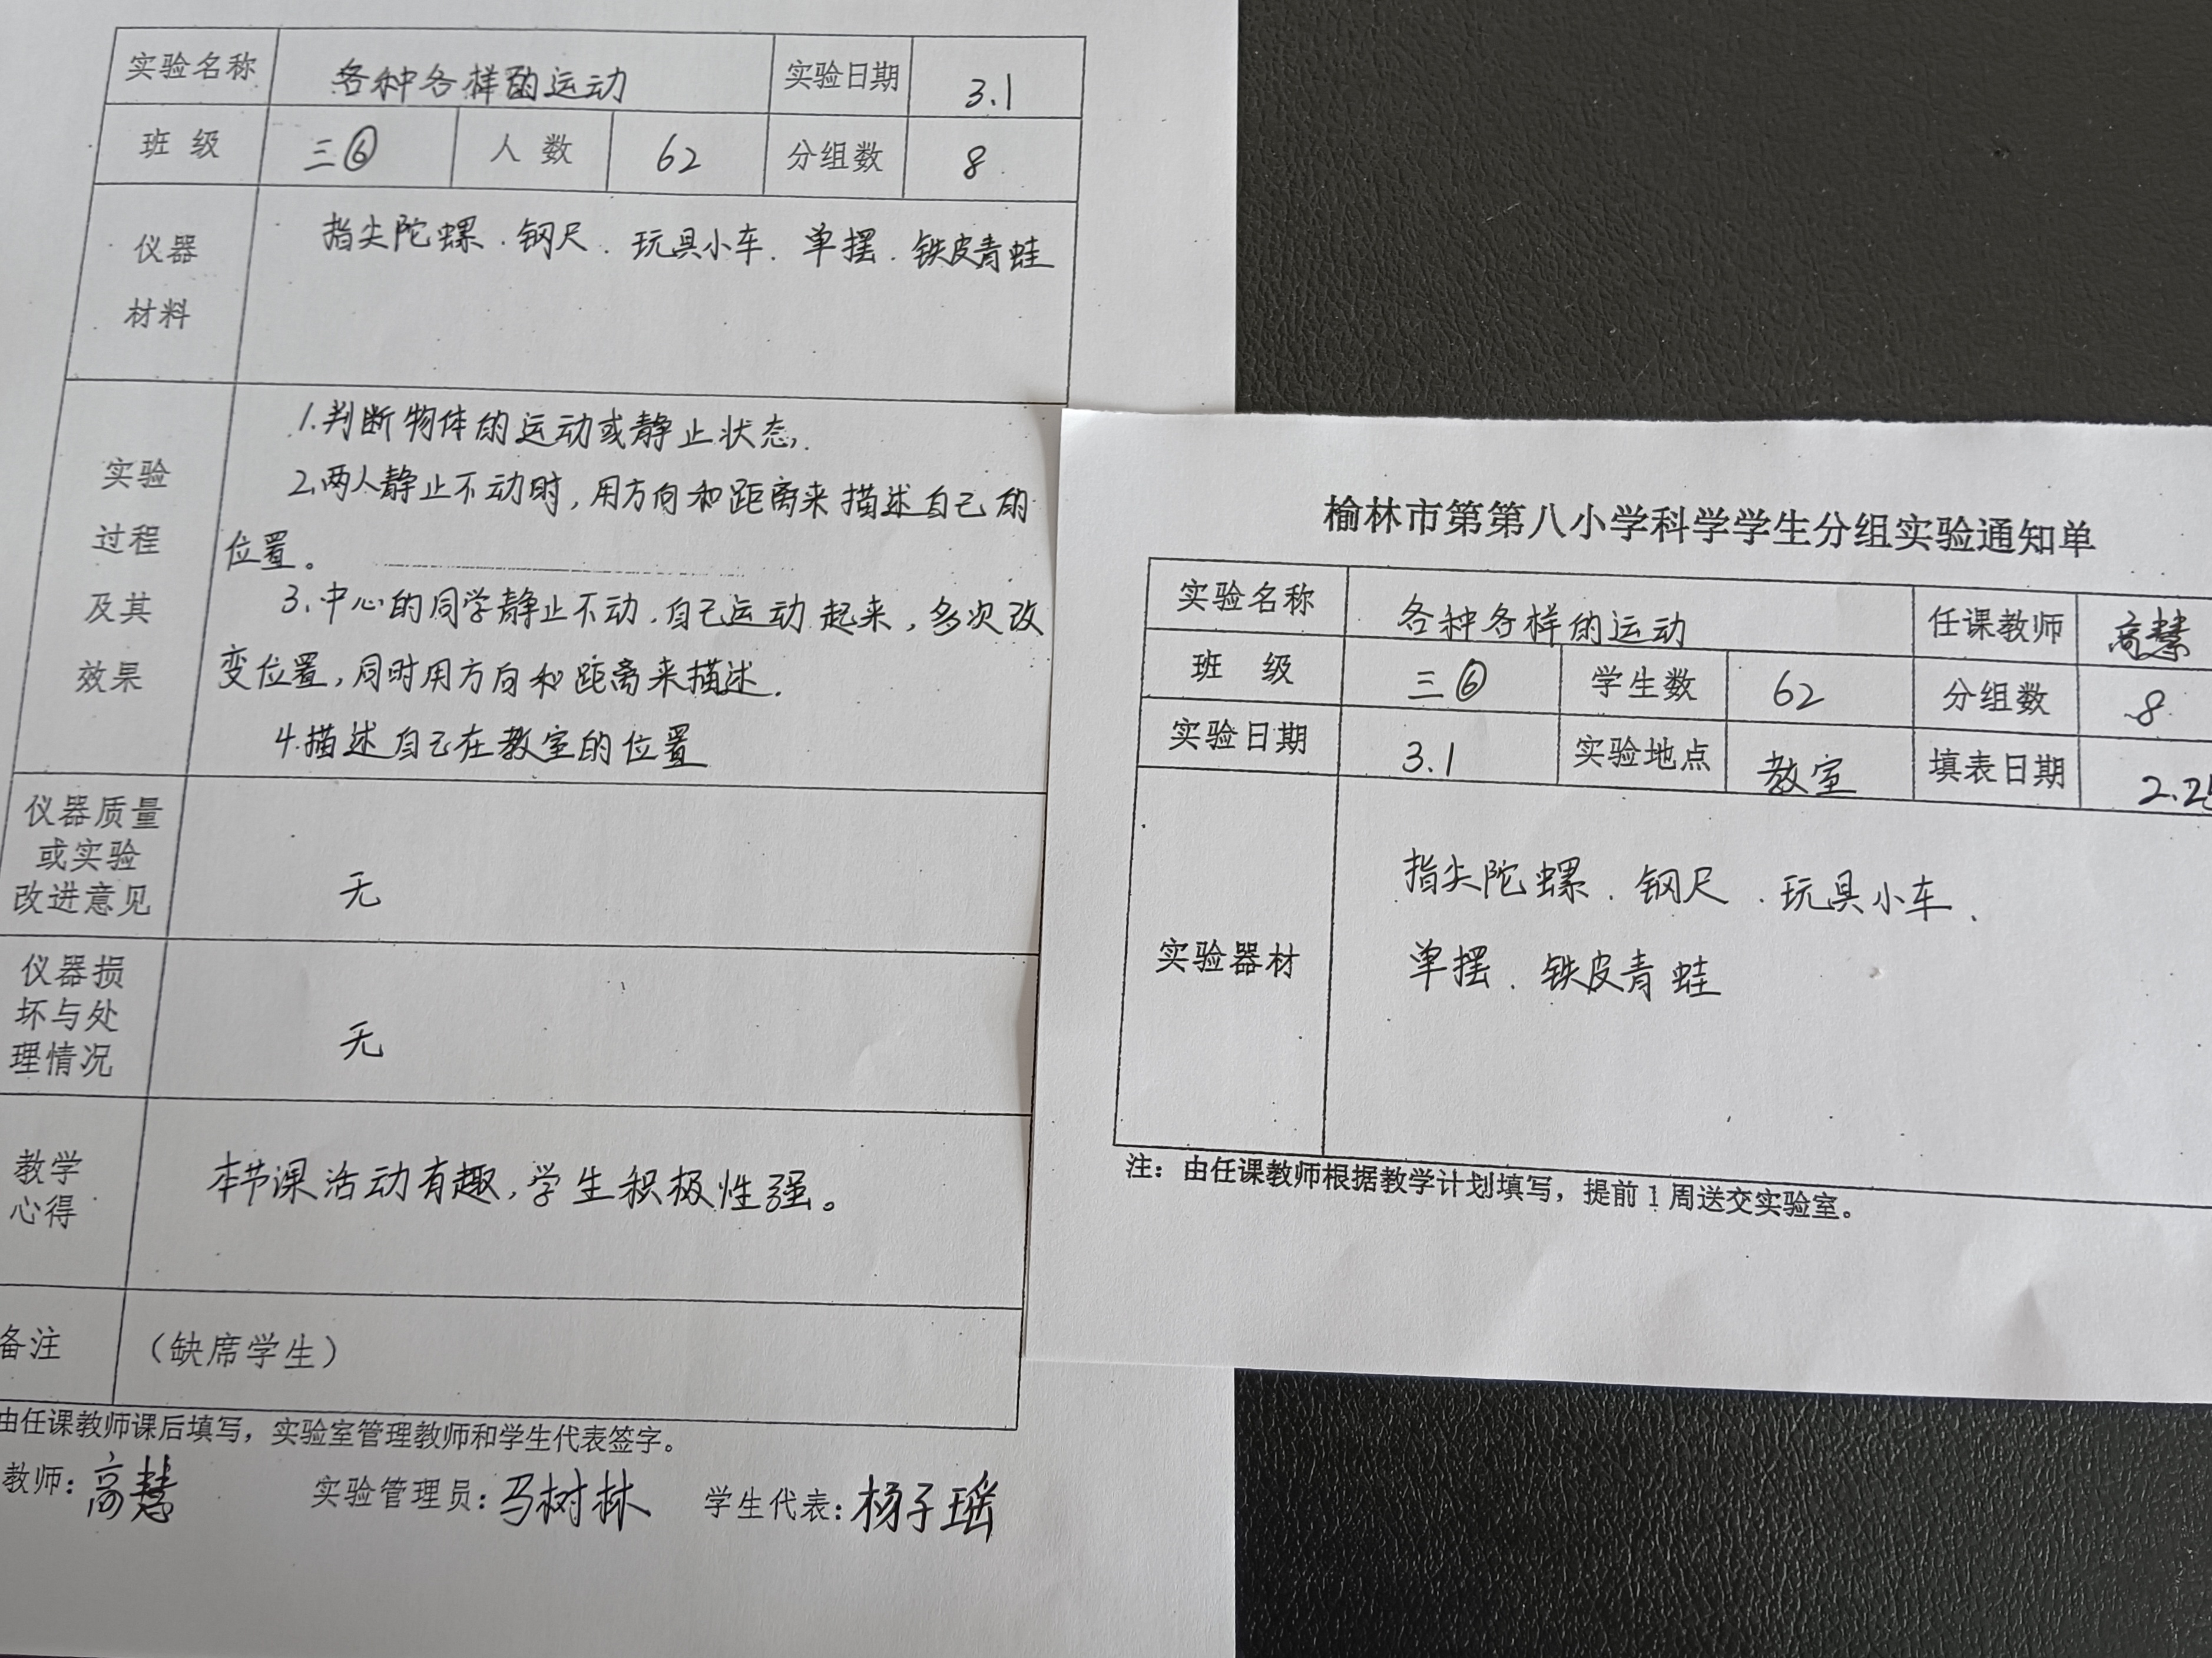 实验名称 各种各样的运动 实验日期 3.1
班 级 三⑥ 人 数 62 分组数 8
仪器
材料
指尖陀螺 . 钢尺 . 玩具小车 . 单摆 . 铁皮青蛙
实验
过程
及其
效果
1.判断物体的运动或静止状态.
2.两人静止不动时,用方向和距离来描述自己的
位置。
3.中心的同学静止不动.自己运动起来,多次改
变位置,同时用方向和距离来描述.
4.描述自己在教室的位置
仪器质量
或实验
改进意见
无
仪器损
坏与处
理情况
无
教学
心得
本节课活动有趣,学生积极性强。
备注 (缺席学生)
由任课教师课后填写，实验室管理教师和学生代表签字。
教师: 高慧 实验管理员: 马树林 学生代表: 杨子瑶
榆林市第第八小学科学学生分组实验通知单
实验名称 各种各样的运动 任课教师 高慧
班 级 三⑥ 学生数 62 分组数 8
实验日期 3.1 实验地点 教室 填表日期
实验器材
指尖陀螺 . 钢尺 . 玩具小车 .
单摆 . 铁皮青蛙
注：由任课教师根据教学计划填写，提前 1 周送交实验室。